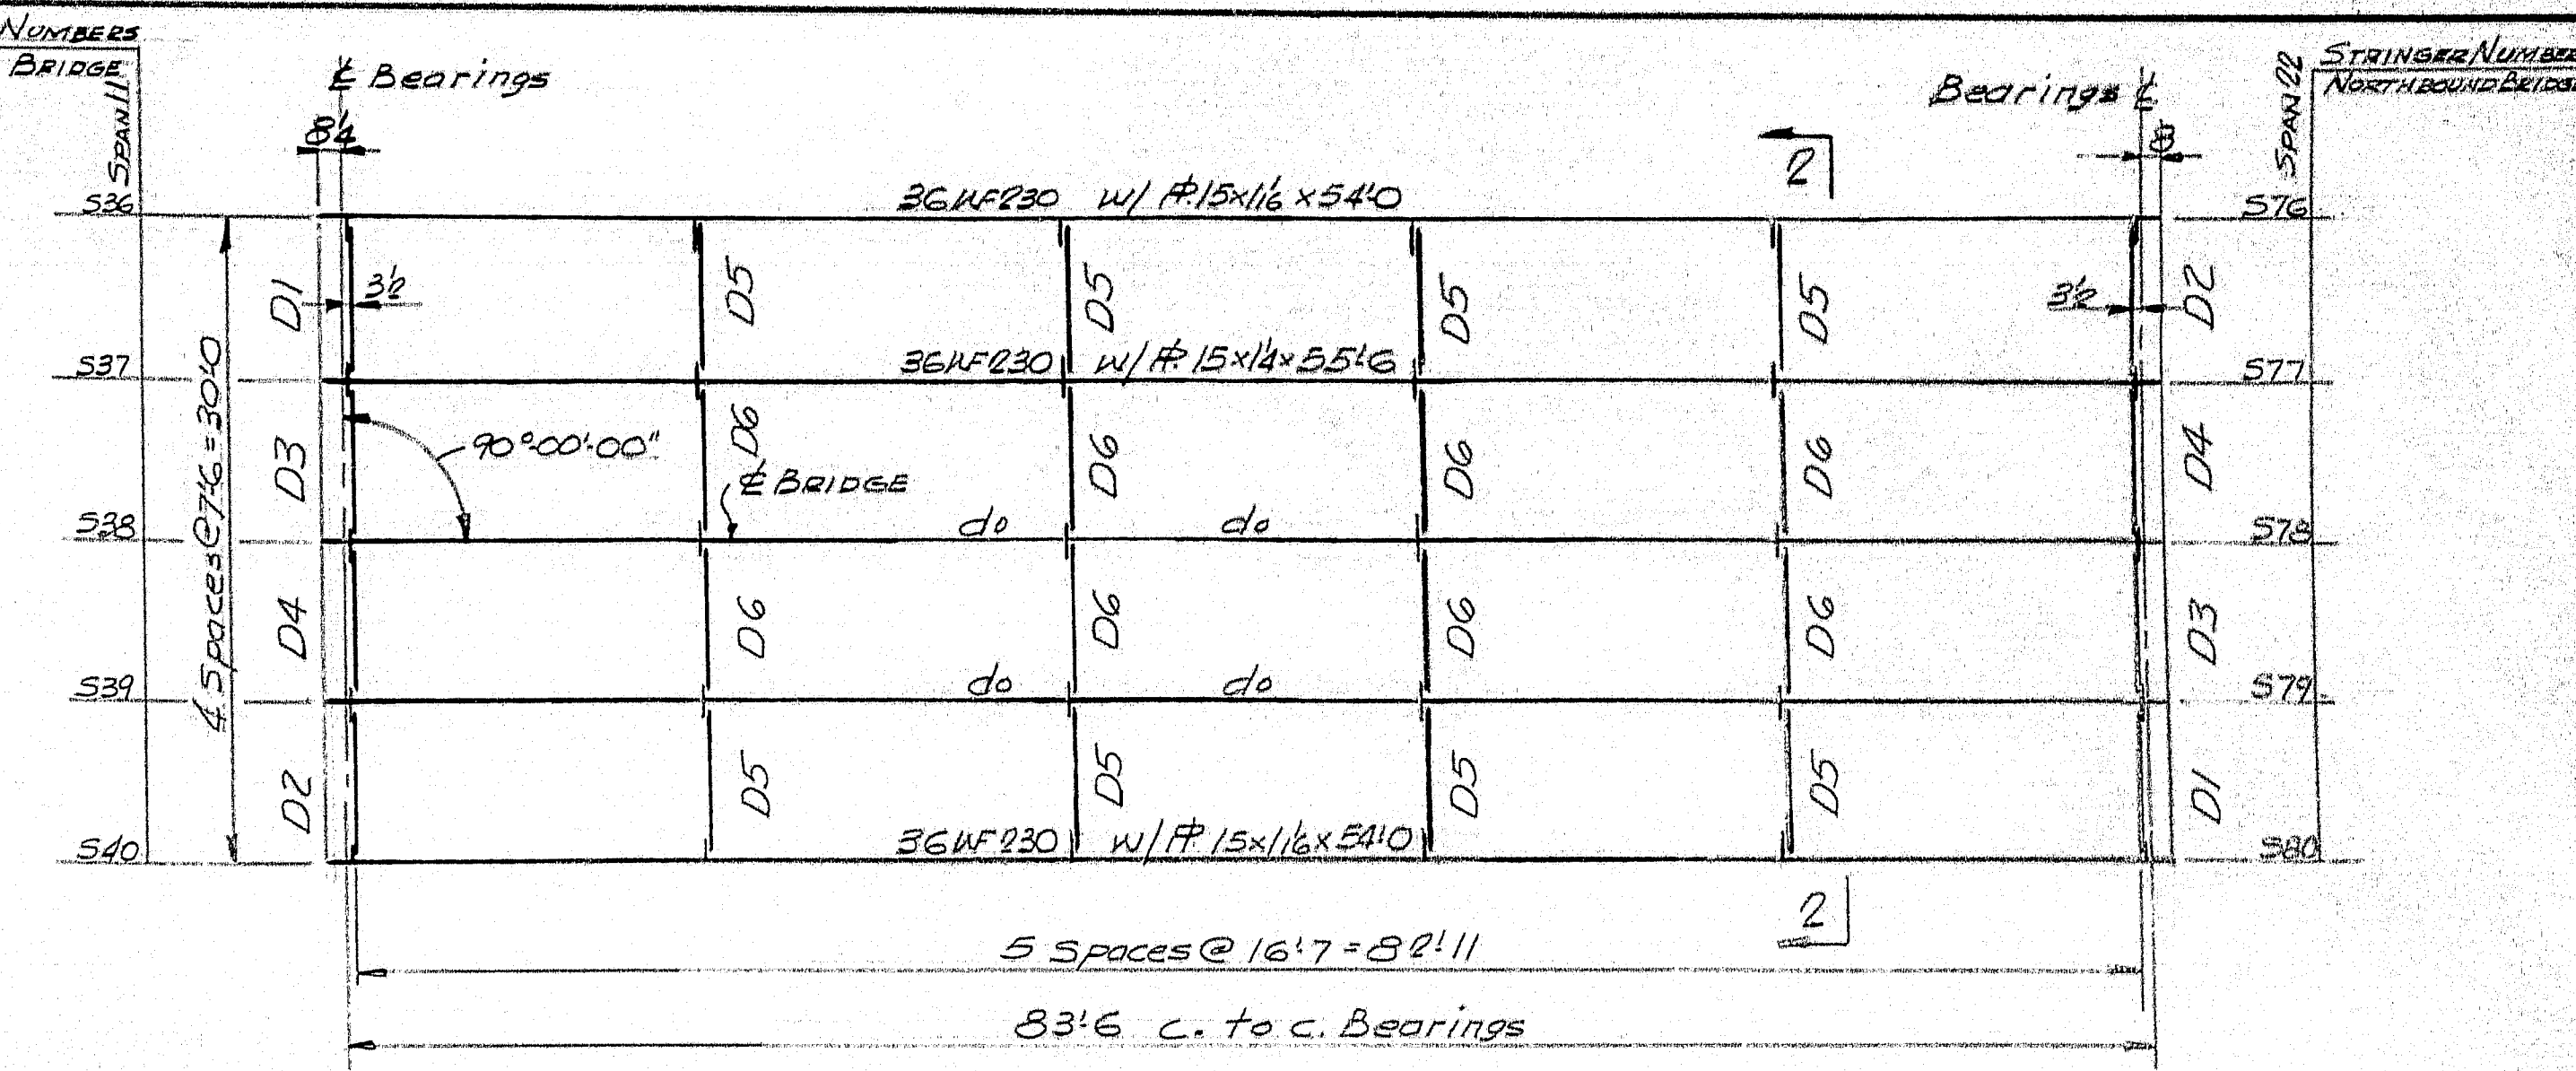 NUMBERS
BRIDGE
SPAN 11
℄ Bearings
8¼
Bearings ℄
8
SPAN 22
STRINGER NUMBER
NORTHBOUND BRIDGE
2
S36
36WF230 w/ ℙ 15×1 1/16 ×54'-0
S76
D1
3½
D5
D5
D5
D5
3½
D2
S37
36WF230 w/ ℙ 15×1¼×55'-6
S77
4 Spaces @ 7'-6 = 30'-0
D3
90°-00'-00"
D6
℄ BRIDGE
D6
D6
D6
D4
S38
do do
S78
D4
D6
D6
D6
D6
D3
S39
do do
S79
D2
D5
D5
D5
D5
D1
S40
36WF230 w/ ℙ 15×1 1/16×54'-0
S80
2
5 Spaces @ 16'-7 = 82'-11
83'-6 c. to c. Bearings